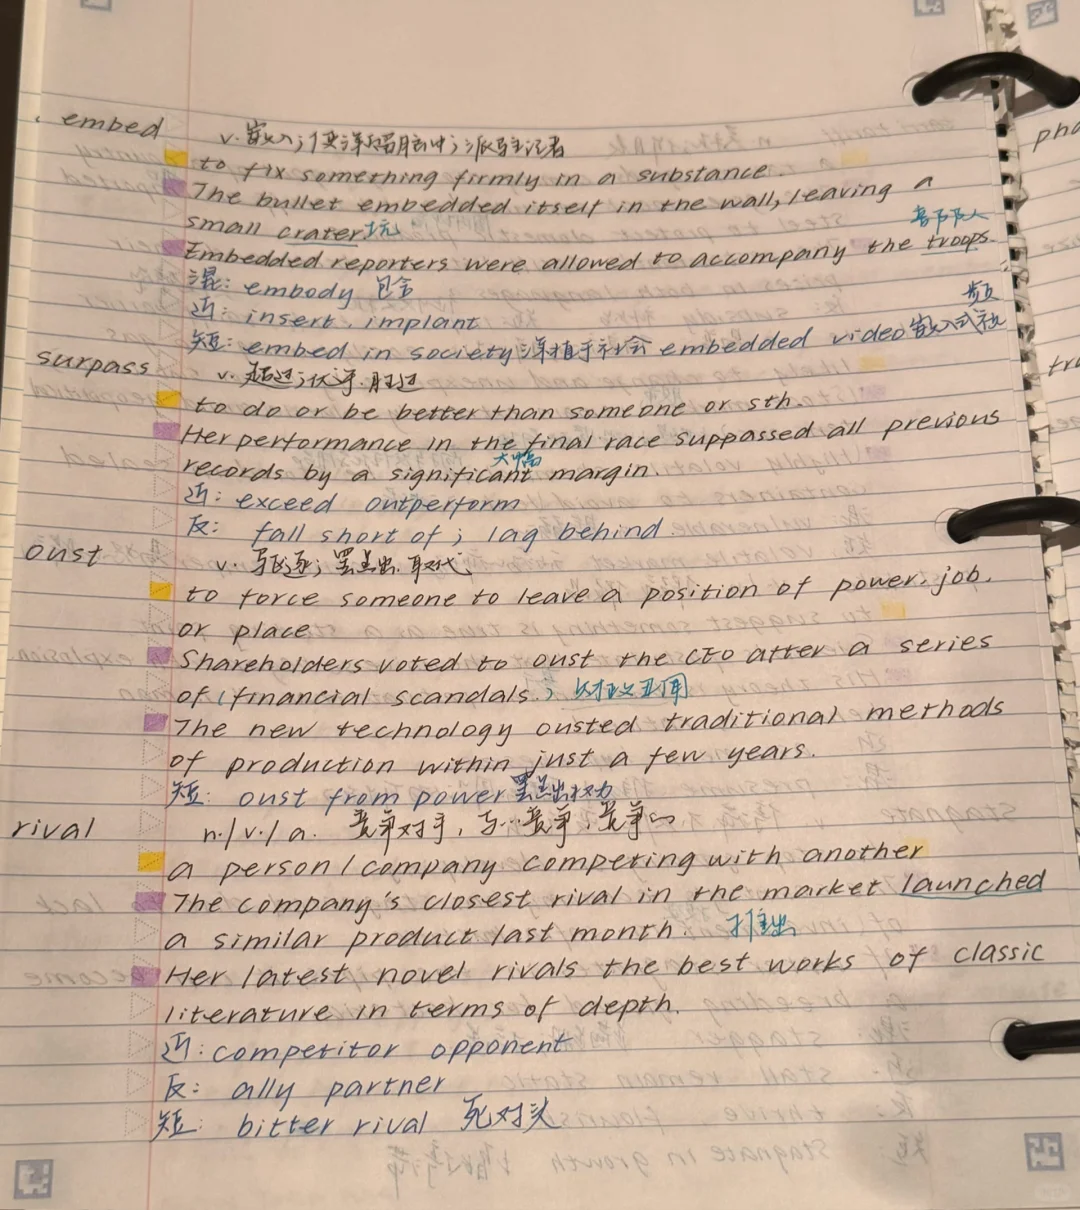 embed v. 嵌入；使深留脑中；派驻记者
to fix something firmly in a substance.
The bullet embedded itself in the wall, leaving a
small crater 坑 部队人
Embedded reporters were allowed to accompany the troops.
混: embody 包含
近: insert, implant 频
短: embed in society 深植于社会 embedded video 嵌入式视
surpass v. 超过；优于. 胜过
to do or be better than someone or sth.
Her performance in the final race suppassed all previous
大幅
records by a significant margin
近: exceed outperform
反: fall short of ; lag behind
oust v. 驱逐；罢黜. 取代
to force someone to leave a position of power, job,
or place
Shareholders voted to oust the CEO after a series
of (financial scandals.; 财政丑闻
The new technology ousted traditional methods
of production within just a few years.
短: oust from power 罢黜权力
rival n./v./a. 竞争对手, 与…竞争；竞争的
a person/company competing with another
The company's closest rival in the market launched
a similar product last month. 推出
Her latest novel rivals the best works of classic
literature in terms of depth.
近: competitor opponent
反: ally partner
短: bitter rival 死对头